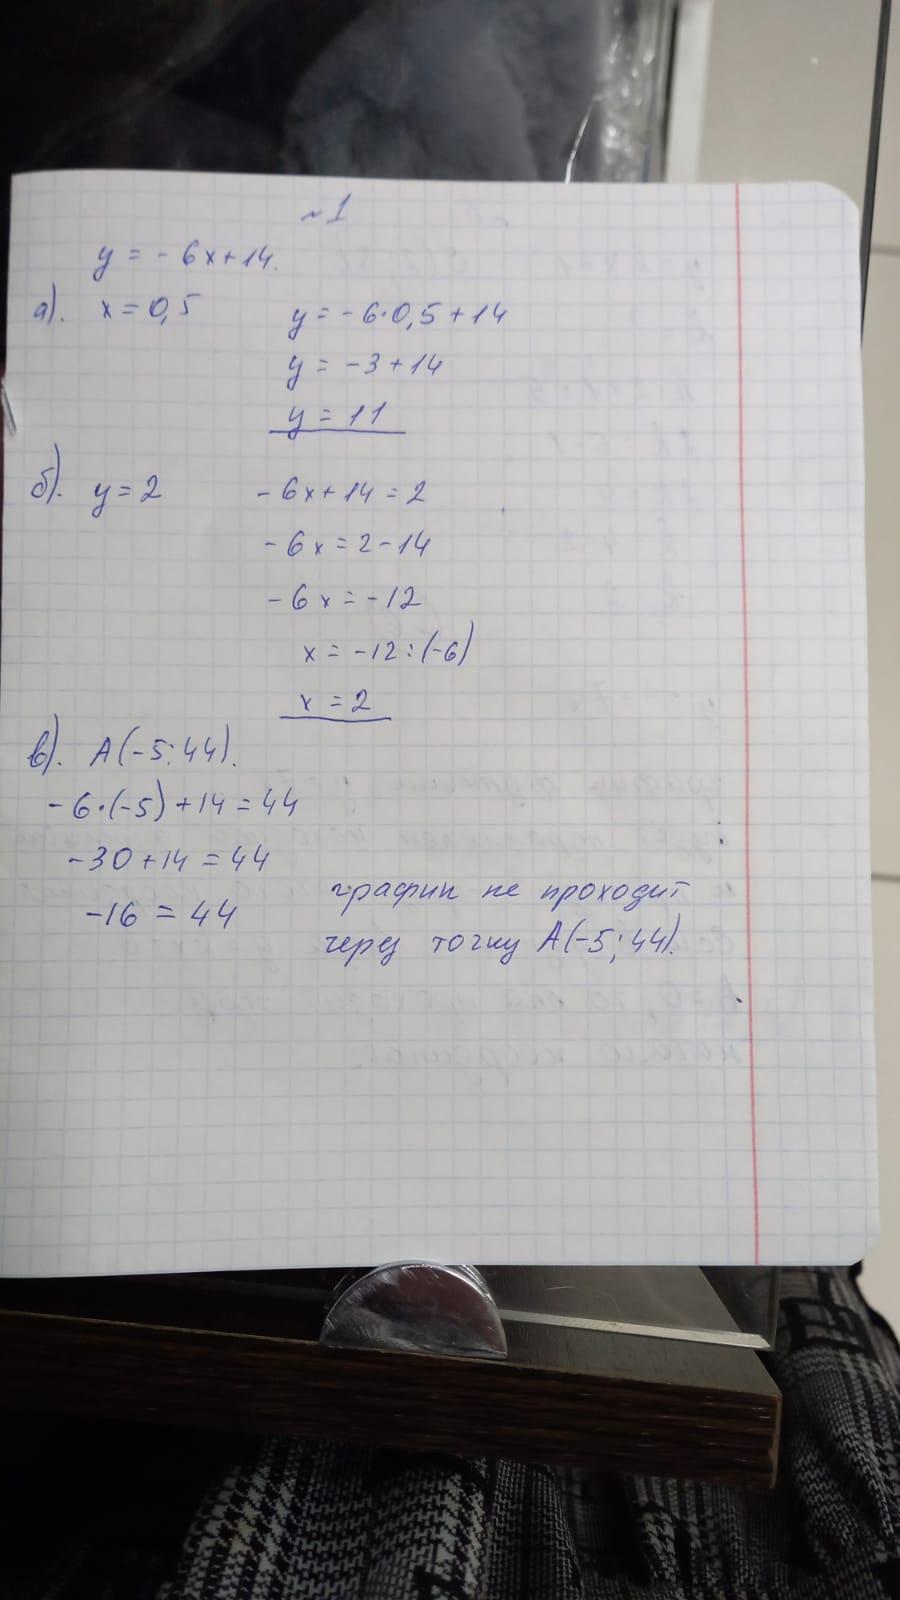 №1
y = - 6x + 14.
а). x = 0,5 y = - 6·0,5 + 14
y = -3 + 14
y = 11
б). y = 2 - 6x + 14 = 2
- 6x = 2 - 14
- 6x = -12
x = -12 : (-6)
x = 2
в). A(-5; 44).
- 6·(-5) + 14 = 44
-30 + 14 = 44
-16 = 44 график не проходит
через точку A(-5; 44).